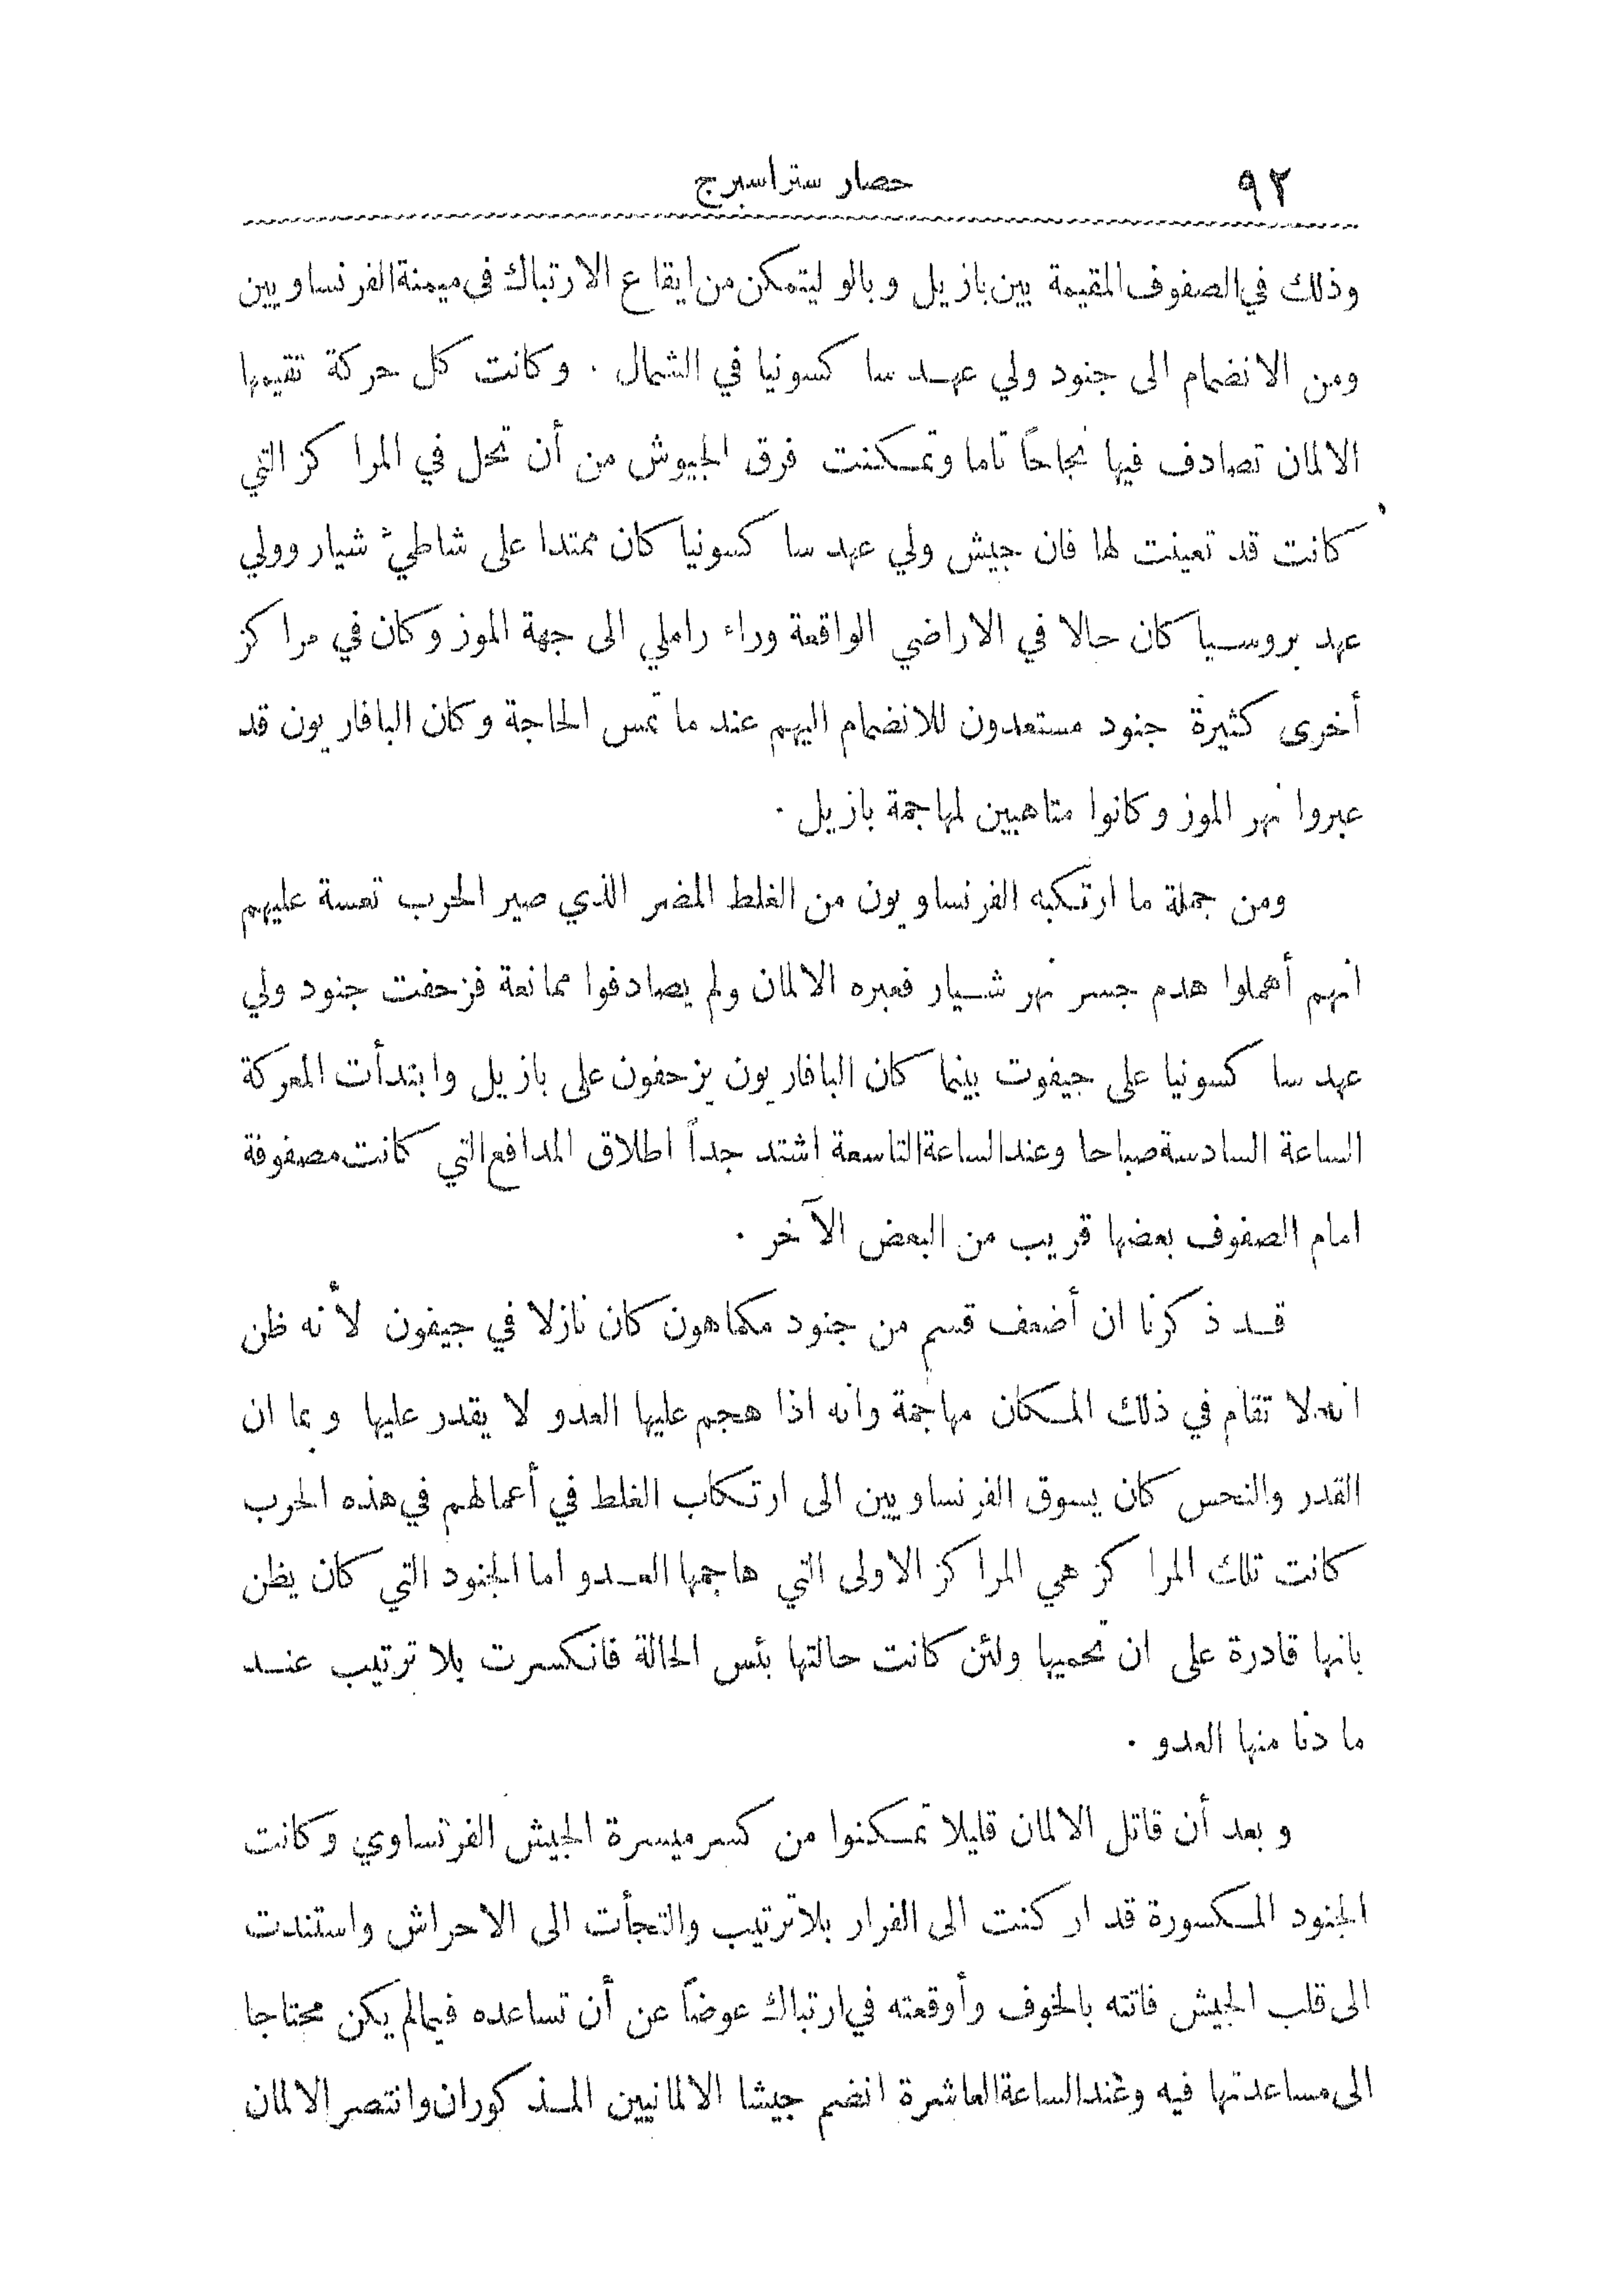 ٩٢ حصار ستراسبرج
وذلك في الصفوف المقيمة بين بازيل وبالو ليتمكن من ايقاع الارتباك في ميمنة الفرنساويين
ومن الانضمام الى جنود ولي عهد ساكسونيا في الشمال . وكانت كل حركة تقيمها
الالمان تصادف فيها نجاحاً تاما وتمكنت فرق الجيوش من أن تحل في المراكز التي
كانت قد تعينت لها فان جيش ولي عهد ساكسونيا كان ممتدا على شاطيء شيار وولي
عهد بروسيا كان حالا في الاراضي الواقعة وراء راملي الى جهة الموز وكان في مراكز
أخرى كثيرة جنود مستعدون للانضمام اليهم عند ما تمس الحاجة وكان البافاريون قد
عبروا نهر الموز وكانوا متاهبين لمهاجمة بازيل .
ومن جملة ما ارتكبه الفرنساويون من الغلط المضر الذي صير الحرب تعسة عليهم
انهم أهملوا هدم جسر نهر شيار فعبره الالمان ولم يصادفوا ممانعة فزحفت جنود ولي
عهد ساكسونيا على جيفوت بينما كان البافاريون يزحفون على بازيل وابتدأت المعركة
الساعة السادسة صباحا وعند الساعة التاسعة اشتد جداً اطلاق المدافع التي كانت مصفوفة
امام الصفوف بعضها قريب من البعض الآخر .
قد ذكرنا ان أضعف قسم من جنود مكماهون كان نازلا في جيفون لأنه ظن
انه لا تقام في ذلك المكان مهاجمة وانه اذا هجم عليها العدو لا يقدر عليها وبما ان
القدر والنحس كان يسوق الفرنساويين الى ارتكاب الغلط في أعمالهم في هذه الحرب
كانت تلك المراكز هي المراكز الاولى التي هاجمها العدو اما الجنود التي كان يظن
بانها قادرة على ان تحميها ولئن كانت حالتها بئس الحالة فانكسرت بلا ترتيب عند
ما دنا منها العدو .
وبعد أن قاتل الالمان قليلا تمكنوا من كسر ميسرة الجيش الفرنساوي وكانت
الجنود المكسورة قد اركنت الى الفرار بلا ترتيب والتجأت الى الاحراش واستندت
الى قلب الجيش فاتته بالخوف وأوقعته في ارتباك عوضاً عن أن تساعده فيما لم يكن محتاجا
الى مساعدتها فيه وعند الساعة العاشرة انضم جيشا الالمانيين المذكوران وانتصر الالمان